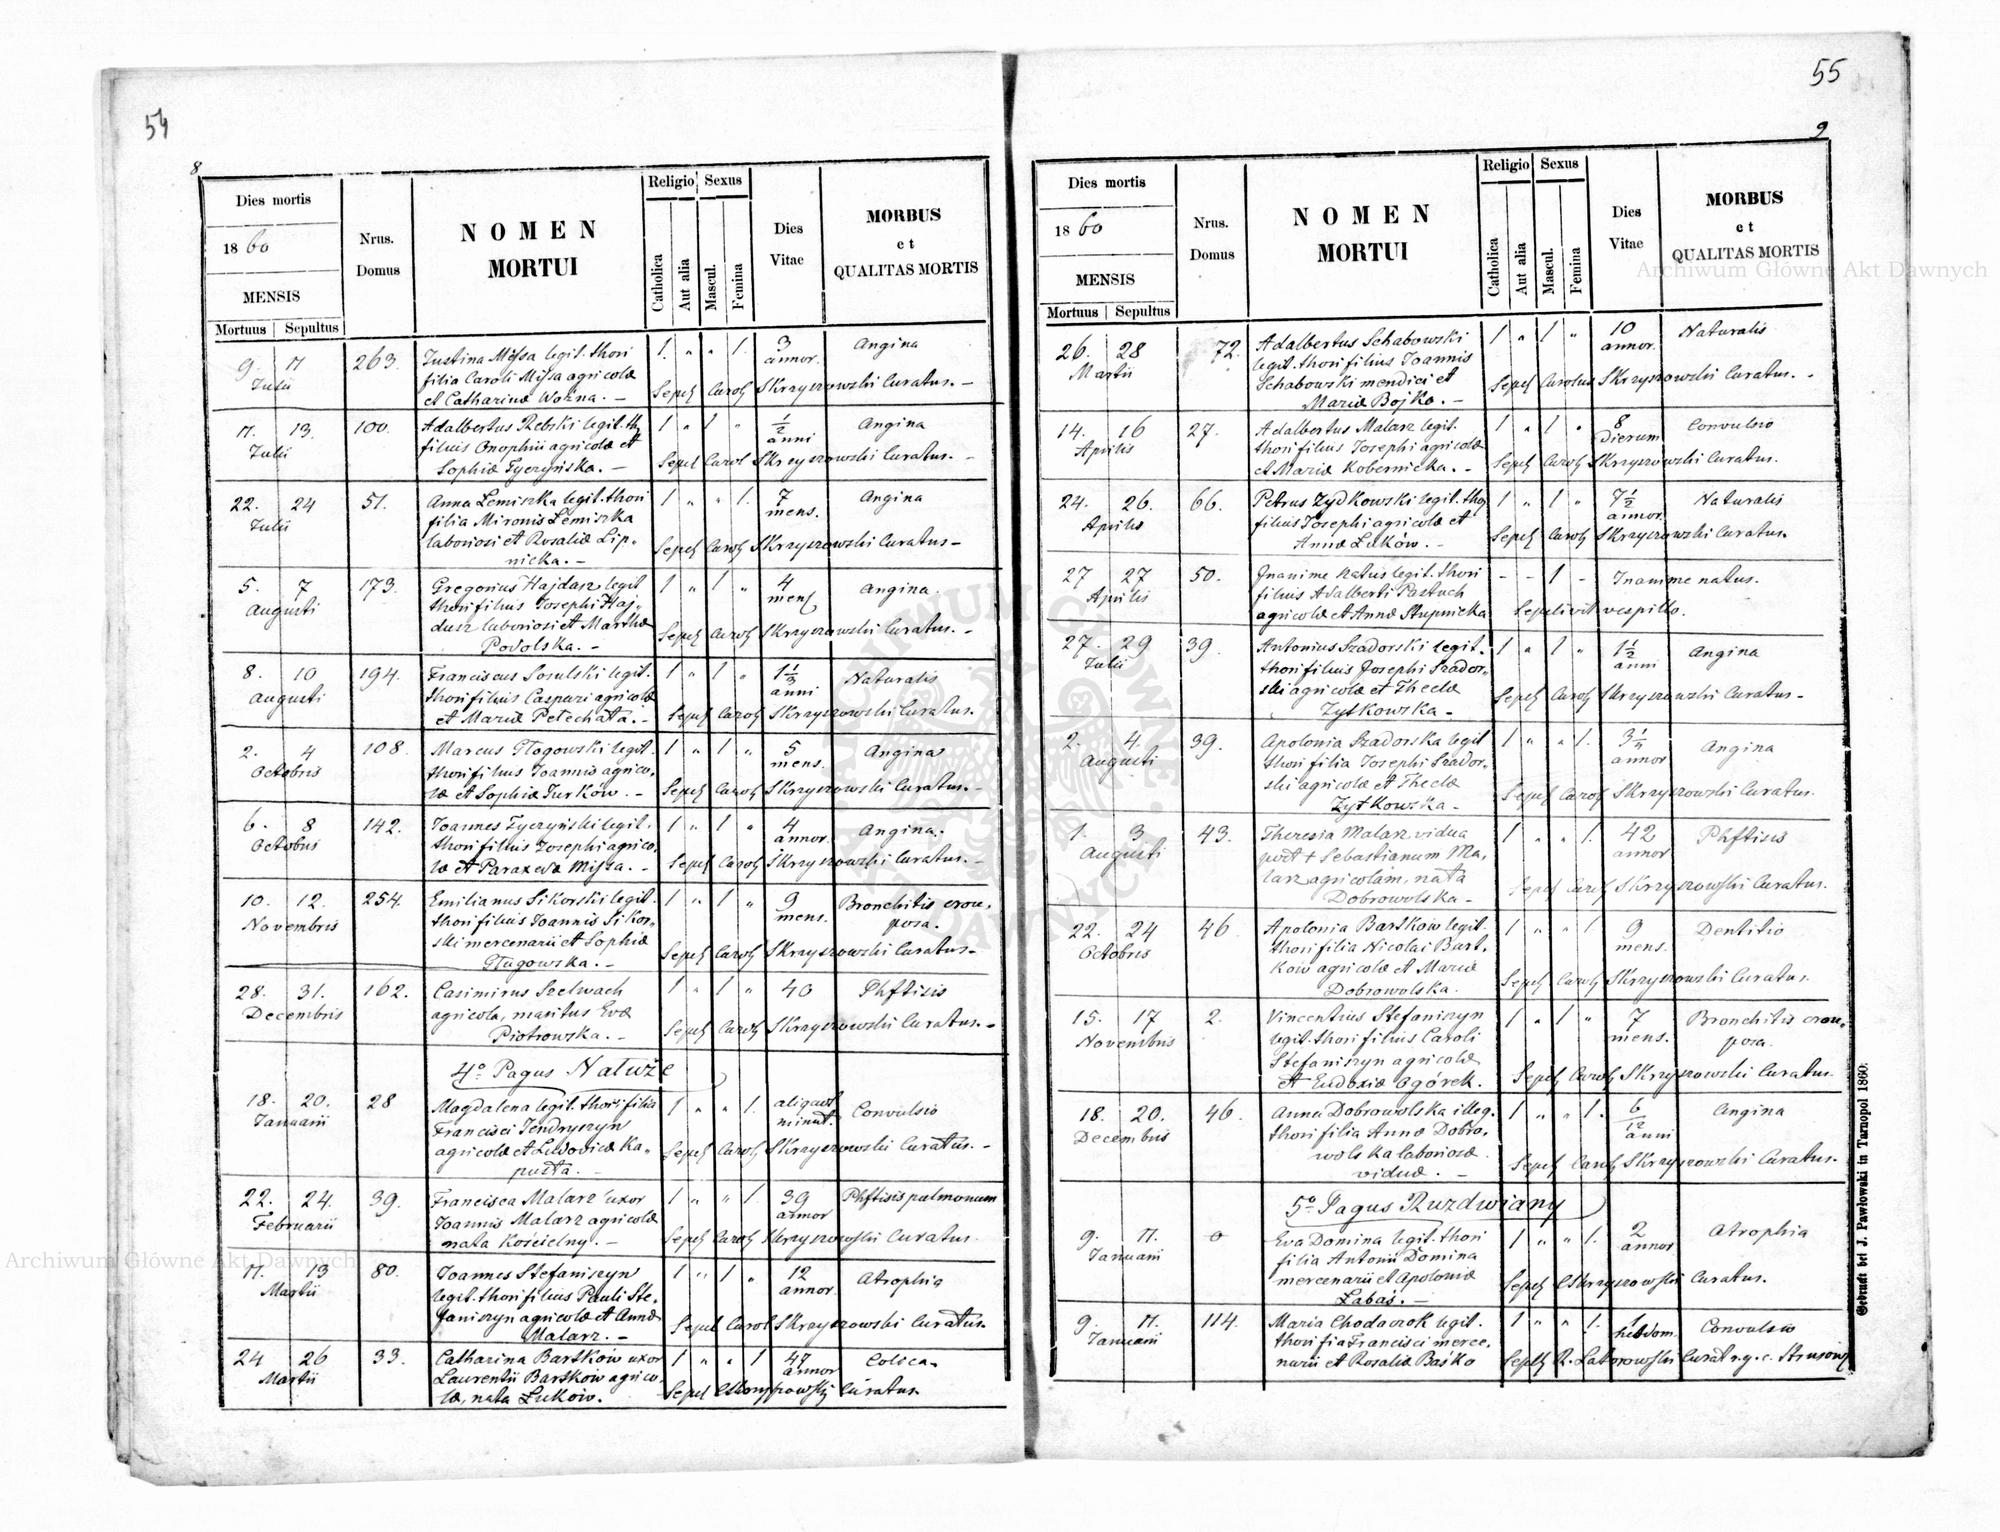 54
8
Dies mortis
1860
MENSIS
Mortuus Sepultus
Nrus. Domus
NOMEN
MORTUI
Religio Sexus
Catholica
Aut alia
Mascul.
Femina
Dies
Vitae
MORBUS
et
QUALITAS MORTIS
9. 11 263. Justina Missa legit. thori 1. " " 1. 3 Angina
Julii filia Caroli Missa agricolæ annor.
et Catharinæ Wozna. — Sepel Carol Skrzyszowski Curatus. —
11. 13. 100. Adalbertus Rebski legit. th 1 " 1 " ½ Angina
Julii filius Onophrii agricolæ et anni
Sophiæ Tyczyńska. — Sepel Carol Skrzyszowski Curatus. —
22. 24 51. Anna Lemiszka legit. thori 1 " " 1. 7 Angina
Julii filia Mironis Lemiszka mens.
laboriosi et Rosaliæ Lip-
nicka. — Sepel Carol Skrzyszowski Curatus —
5. 7 173. Gregorius Hajdasz legit 1 " 1 " 4 Angina.
Augusti thori filius Josephi Haj- mens
dasz laboriosi et Marthæ
Podolska. — Sepel Carol Skrzyszowski Curatus. —
8. 10 194. Franciscus Sosulski legit. 1 " 1 " 1⅓ Naturalis
Augusti thori filius Caspari agricolæ anni
et Mariæ Petechata. — Sepel Carol Skrzyszowski Curatus.
2. 4 108. Marcus Głogowski legit. 1 " 1 " 5 Angina
Octobris thori filius Joannis agrico- mens.
læ et Sophiæ Turków. — Sepel Carol Skrzyszowski Curatus. —
6. 8 142. Joannes Tyczyński legit. 1 " 1 " 4 Angina.
Octobris thori filius Josephi agrico- annor
læ et Paraxedæ Missa. — Sepel Carol Skrzyszowski Curatus. —
10. 12. 254. Emilianus Sikorski legit. 1 " 1 " 9 Bronchitis crou-
Novembris thori filius Joannis Sikor- mens. posa.
ski mercenarii et Sophiæ
Głogowska. — Sepel Carol Skrzyszowski Curatus —
28. 31. 162. Casimirus Szelwach 1 " 1 " 40 Phftisis
Decembris agricola, maritus Evæ
Piotrowska. — Sepel Carol Skrzyszowski Curatus. —
4° Pagus Natuże
18. 20. 28 Magdalena legit. thori filia 1 " " 1. aliquot Convulsio
Januarii Francisci Jendryszyn minut.
agricolæ et Ludovicæ Ka-
pusta. — Sepel Carol Skrzyszowski Curatus. —
22. 24. 39. Francisca Malarz uxor 1 " " 1. 39 Phftisis pulmonum
Februarii Joannis Malarz agricolæ annor
nata Kościelny. — Sepel Carol Skrzyszowski Curatus.
11. 13 80. Joannes Stefaniszyn 1 " 1 " 12 Atrophia
Martii legit. thori filius Pauli Ste- annor.
faniszyn agricolæ et Annæ
Malarz. — Sepel Carol Skrzyszowski Curatus.
24 26 33. Catharina Bartków uxor 1 " " 1 47 Colica.
Martii Laurentii Bartków agrico- annor
læ, nata Łuków. Sepel Curatus.
55
9
Dies mortis
1860
MENSIS
Mortuus Sepultus
Nrus.
Domus
NOMEN
MORTUI
Religio Sexus
Catholica
Aut alia
Mascul.
Femina
Dies
Vitae
MORBUS
et
QUALITAS MORTIS
26. 28 72. Adalbertus Schabowski 1 " 1 " 10 Naturalis
Martii legit. thori filius Joannis annor.
Schabowski mendici et
Mariæ Bojko. — Sepel Carolus Skrzyszowski Curatus. -
14. 16 27. Adalbertus Malarz legit. 1 " 1 " 8 Convulsio
Aprilis thori filius Josephi agricolæ Dierum
et Mariæ Kobernicka. — Sepel Carol Skrzyszowski Curatus.
24. 26. 66. Petrus Zydkowski legit. tho 1 " 1 " 7½ Naturalis
Aprilis filius Josephi agricolæ et annor.
Annæ Łuków. — Sepel Carol Skrzyszowski Curatus.
27 27 50. Inanime natus legit. thori - - 1 - Inanime natus.
Aprilis filius Adalberti Pastuch
agricolæ et Annæ Stupnicka Sepelivit vespillo.
27. 29 39. Antonius Szadorski legit. 1 " 1 " 1½ Angina
Julii thori filius Josephi Szador- anni
ski agricolæ et Theclæ
Zytkowska — Sepel Carol Skrzyszowski Curatus —
2. 4. 39. Apolonia Szadorska legit 1 " " 1. Angina
Augusti thori filia Josephi Szador- annor
ski agricolæ et Theclæ
Zytkowska — Sepel Carol Skrzyszowski Curatus.
1. 3 43. Theresia Malarz vidua 1 " " 1. 42 Phftisis
Augusti post + Sebastianum Ma- annor
larz agricolam, nata
Dobrowolska — Sepel Carol Skrzyszowski Curatus.
22. 24 46. Apolonia Bartków legit. 1 " " 1 9 Dentitio
Octobris thori filia Nicolai Bart- mens.
ków agricolæ et Mariæ
Dobrowolska. Sepel Carol Skrzyszowski Curatus.
15. 17 2. Vincentius Stefaniszyn 1 " 1 " 7 Bronchitis crou-
Novembris legit. thori filius Caroli mens. posa.
Stefaniszyn agricolæ
et Eudoxiæ Ogórek. — Sepel Carol Skrzyszowski Curatus.
18. 20. 46. Anna Dobrowolska illeg. 1 " " 1. 6/12 Angina
Decembris thori filia Annæ Dobro- anni
wolska laboriosæ
viduæ. — Sepel Carol Skrzyszowski Curatus.
5° Pagus Ruzdwiany
9. 11. 0 Eva Domina legit. thori 1 " " 1. 2 Atrophia
Januarii filia Antonii Domina annor
mercenarii et Apoloniæ
Labaś. — Sepel Skrzyszowski Curatus.
9. 11. 114. Maria Chodaczok legit. 1 " " 1. 1 Convulsio
Januarii thori fia Francisci merce- hebdom.
narii et Rosaliæ Baśko Sepelt R. Laborowski Curat r. g. c. Strusow
Gedruckt bei J. Pawłowski in Tarnopol 1860.
Archiwum Główne Akt Dawnych
Archiwum Główne Akt Dawnych
ARCHIWUM GŁÓWNE AKT DAWNYCH